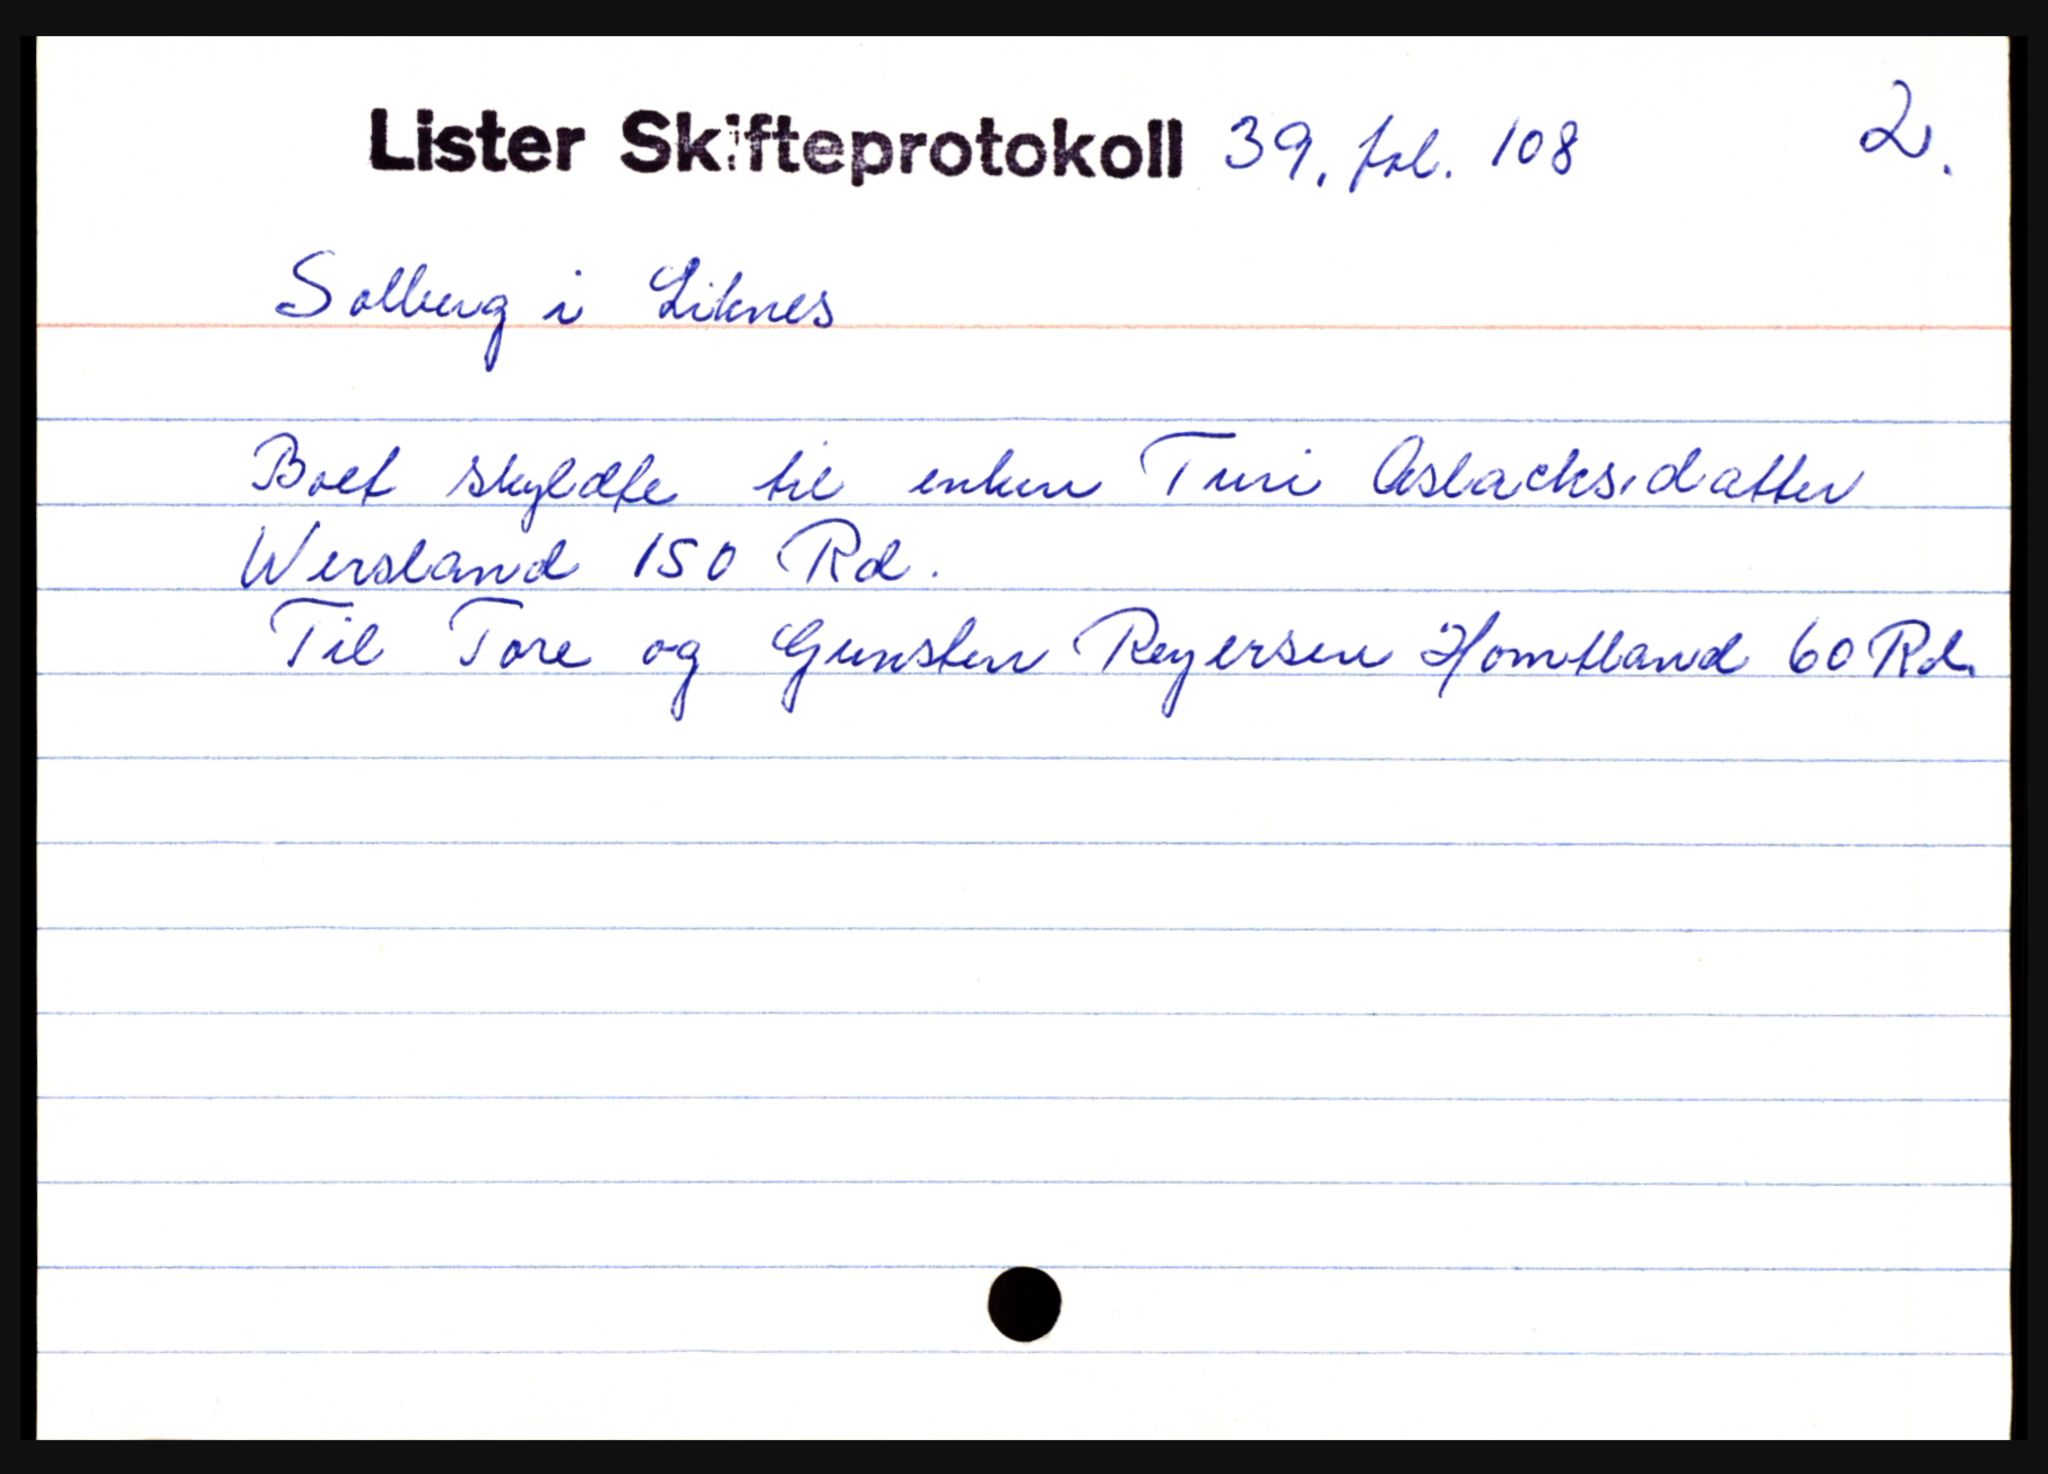 Lister Skifteprotokoll 39, fol. 108 2.
Solberg i Liknes
Boet skyldte til enken Turi Aslacksdatter
Wersland 150 Rd.
Til Tore og Gunsten Reyersen Homtland 60 Rd.